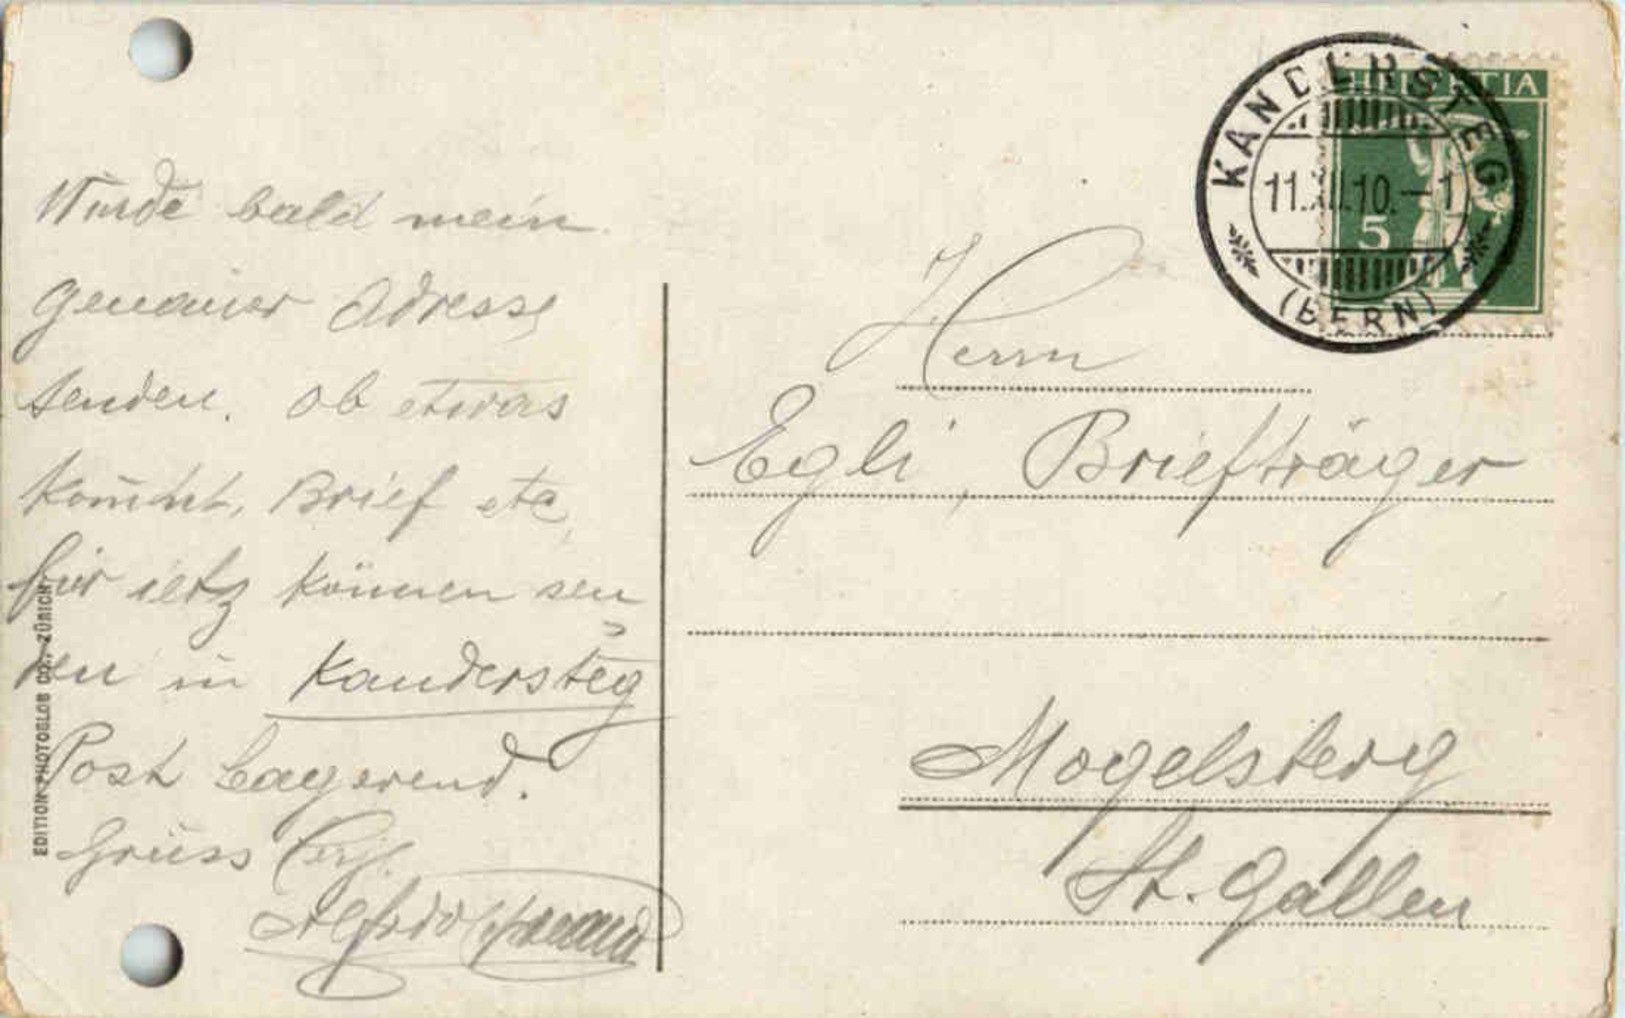 Würde bald mein
genauer Adresse
senden. Ob etwas
kommt, Brief etc,
für ietz können sen
den in Kandersteg
Post Lagerend.
Gruss
Alfredo
EDITION PHOTOGLOB CO., ZÜRICH
HELVETIA
5
KANDERSTEG
11.XII.10.-1
(BERN)
Herrn
Egli, Briefträger
Mogelsberg
St. Gallen